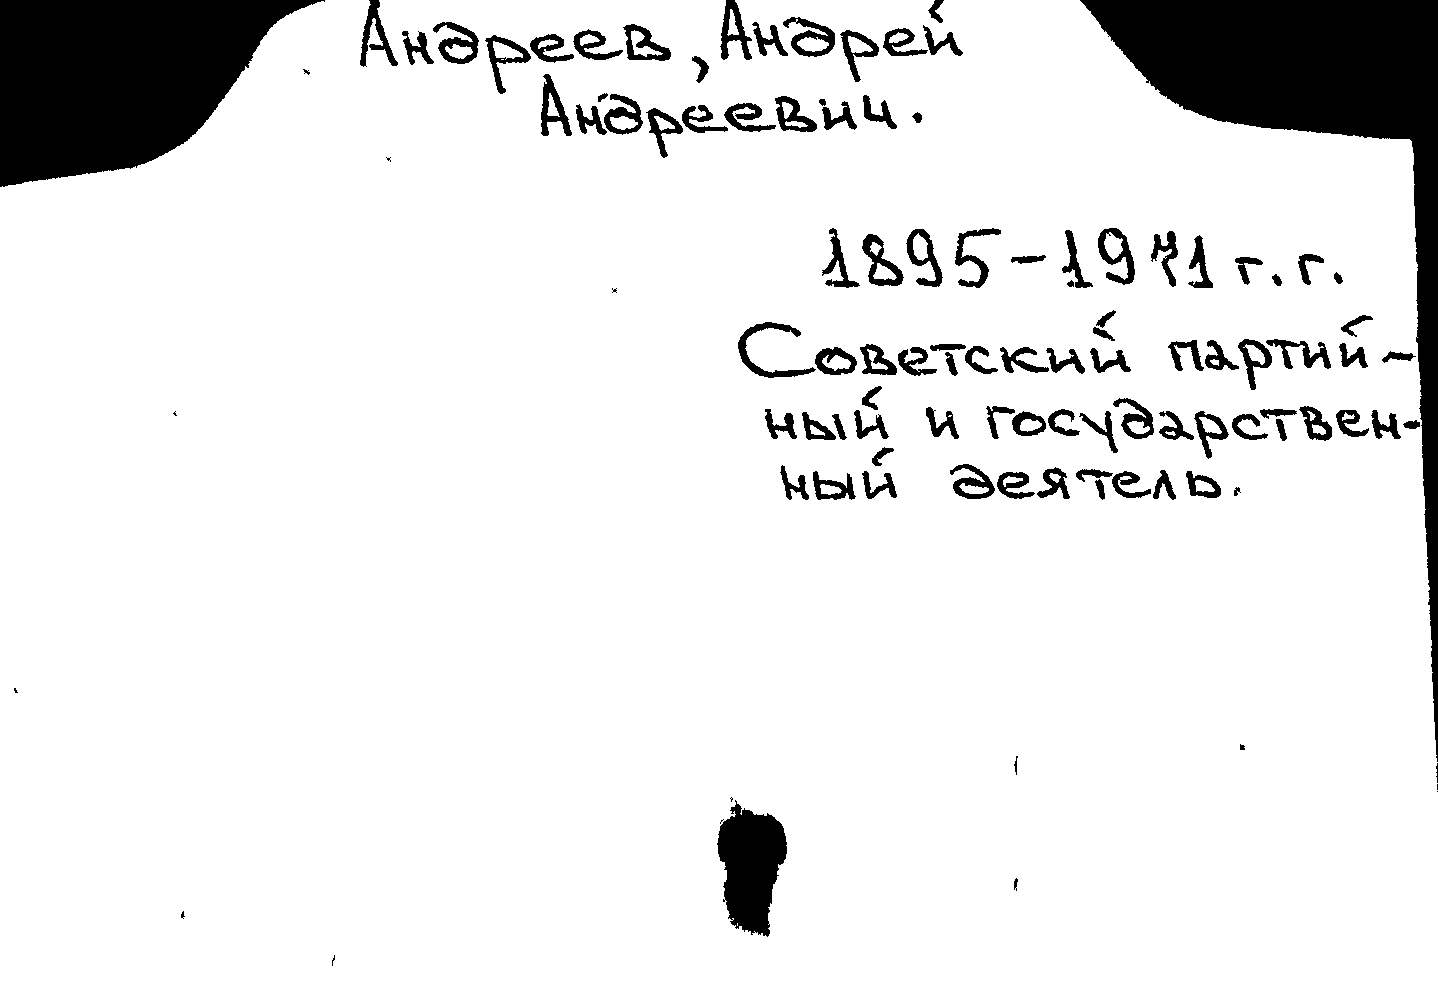 Андреев, Андрей
Андреевич.
1895-1971 г.г.
Советский партий-
ный и государствен-
ный деятель.